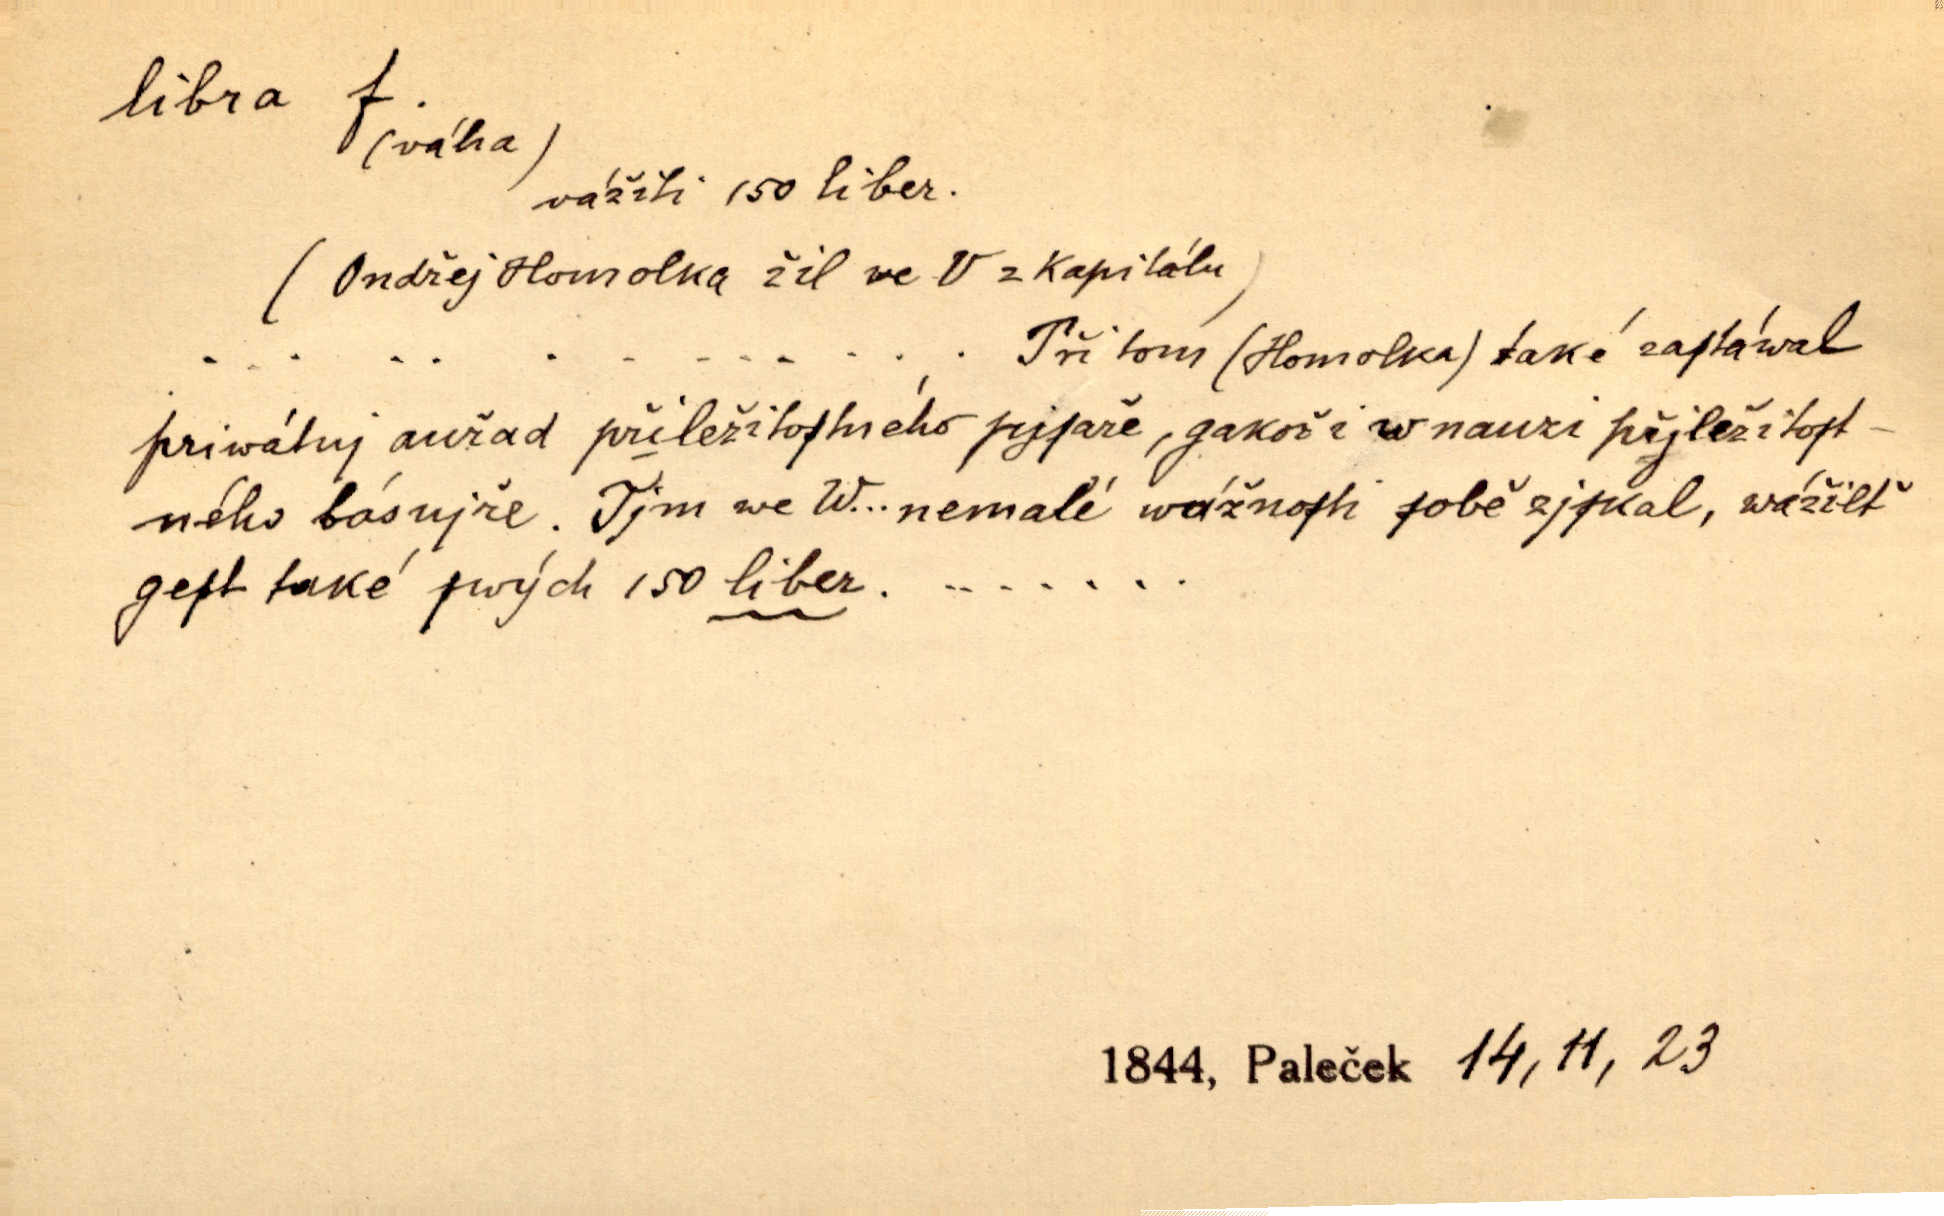 libra f.
(váha)
vážiti 150 liber.
( Ondřej Homolka žil ve V z kapitálu )
. . . . . . . . . . . . . . Při tom (Homolka) také zaſtáwal
priwátnj auřad přiležitoſtného pjſaře, gakož i w nauzi přjležitoſt-
ného básnjře. Tjm we W... nemalé wážnoſti ſobě zjſkal, wážilť
geſt také ſwých 150 liber. . . . . . . .
1844, Paleček 14, 11, 23